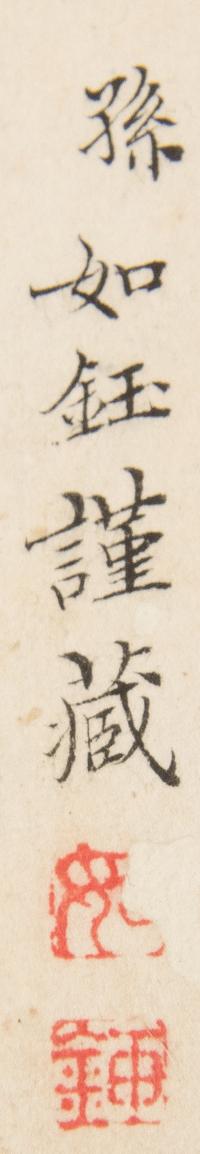 孫如鈺謹藏